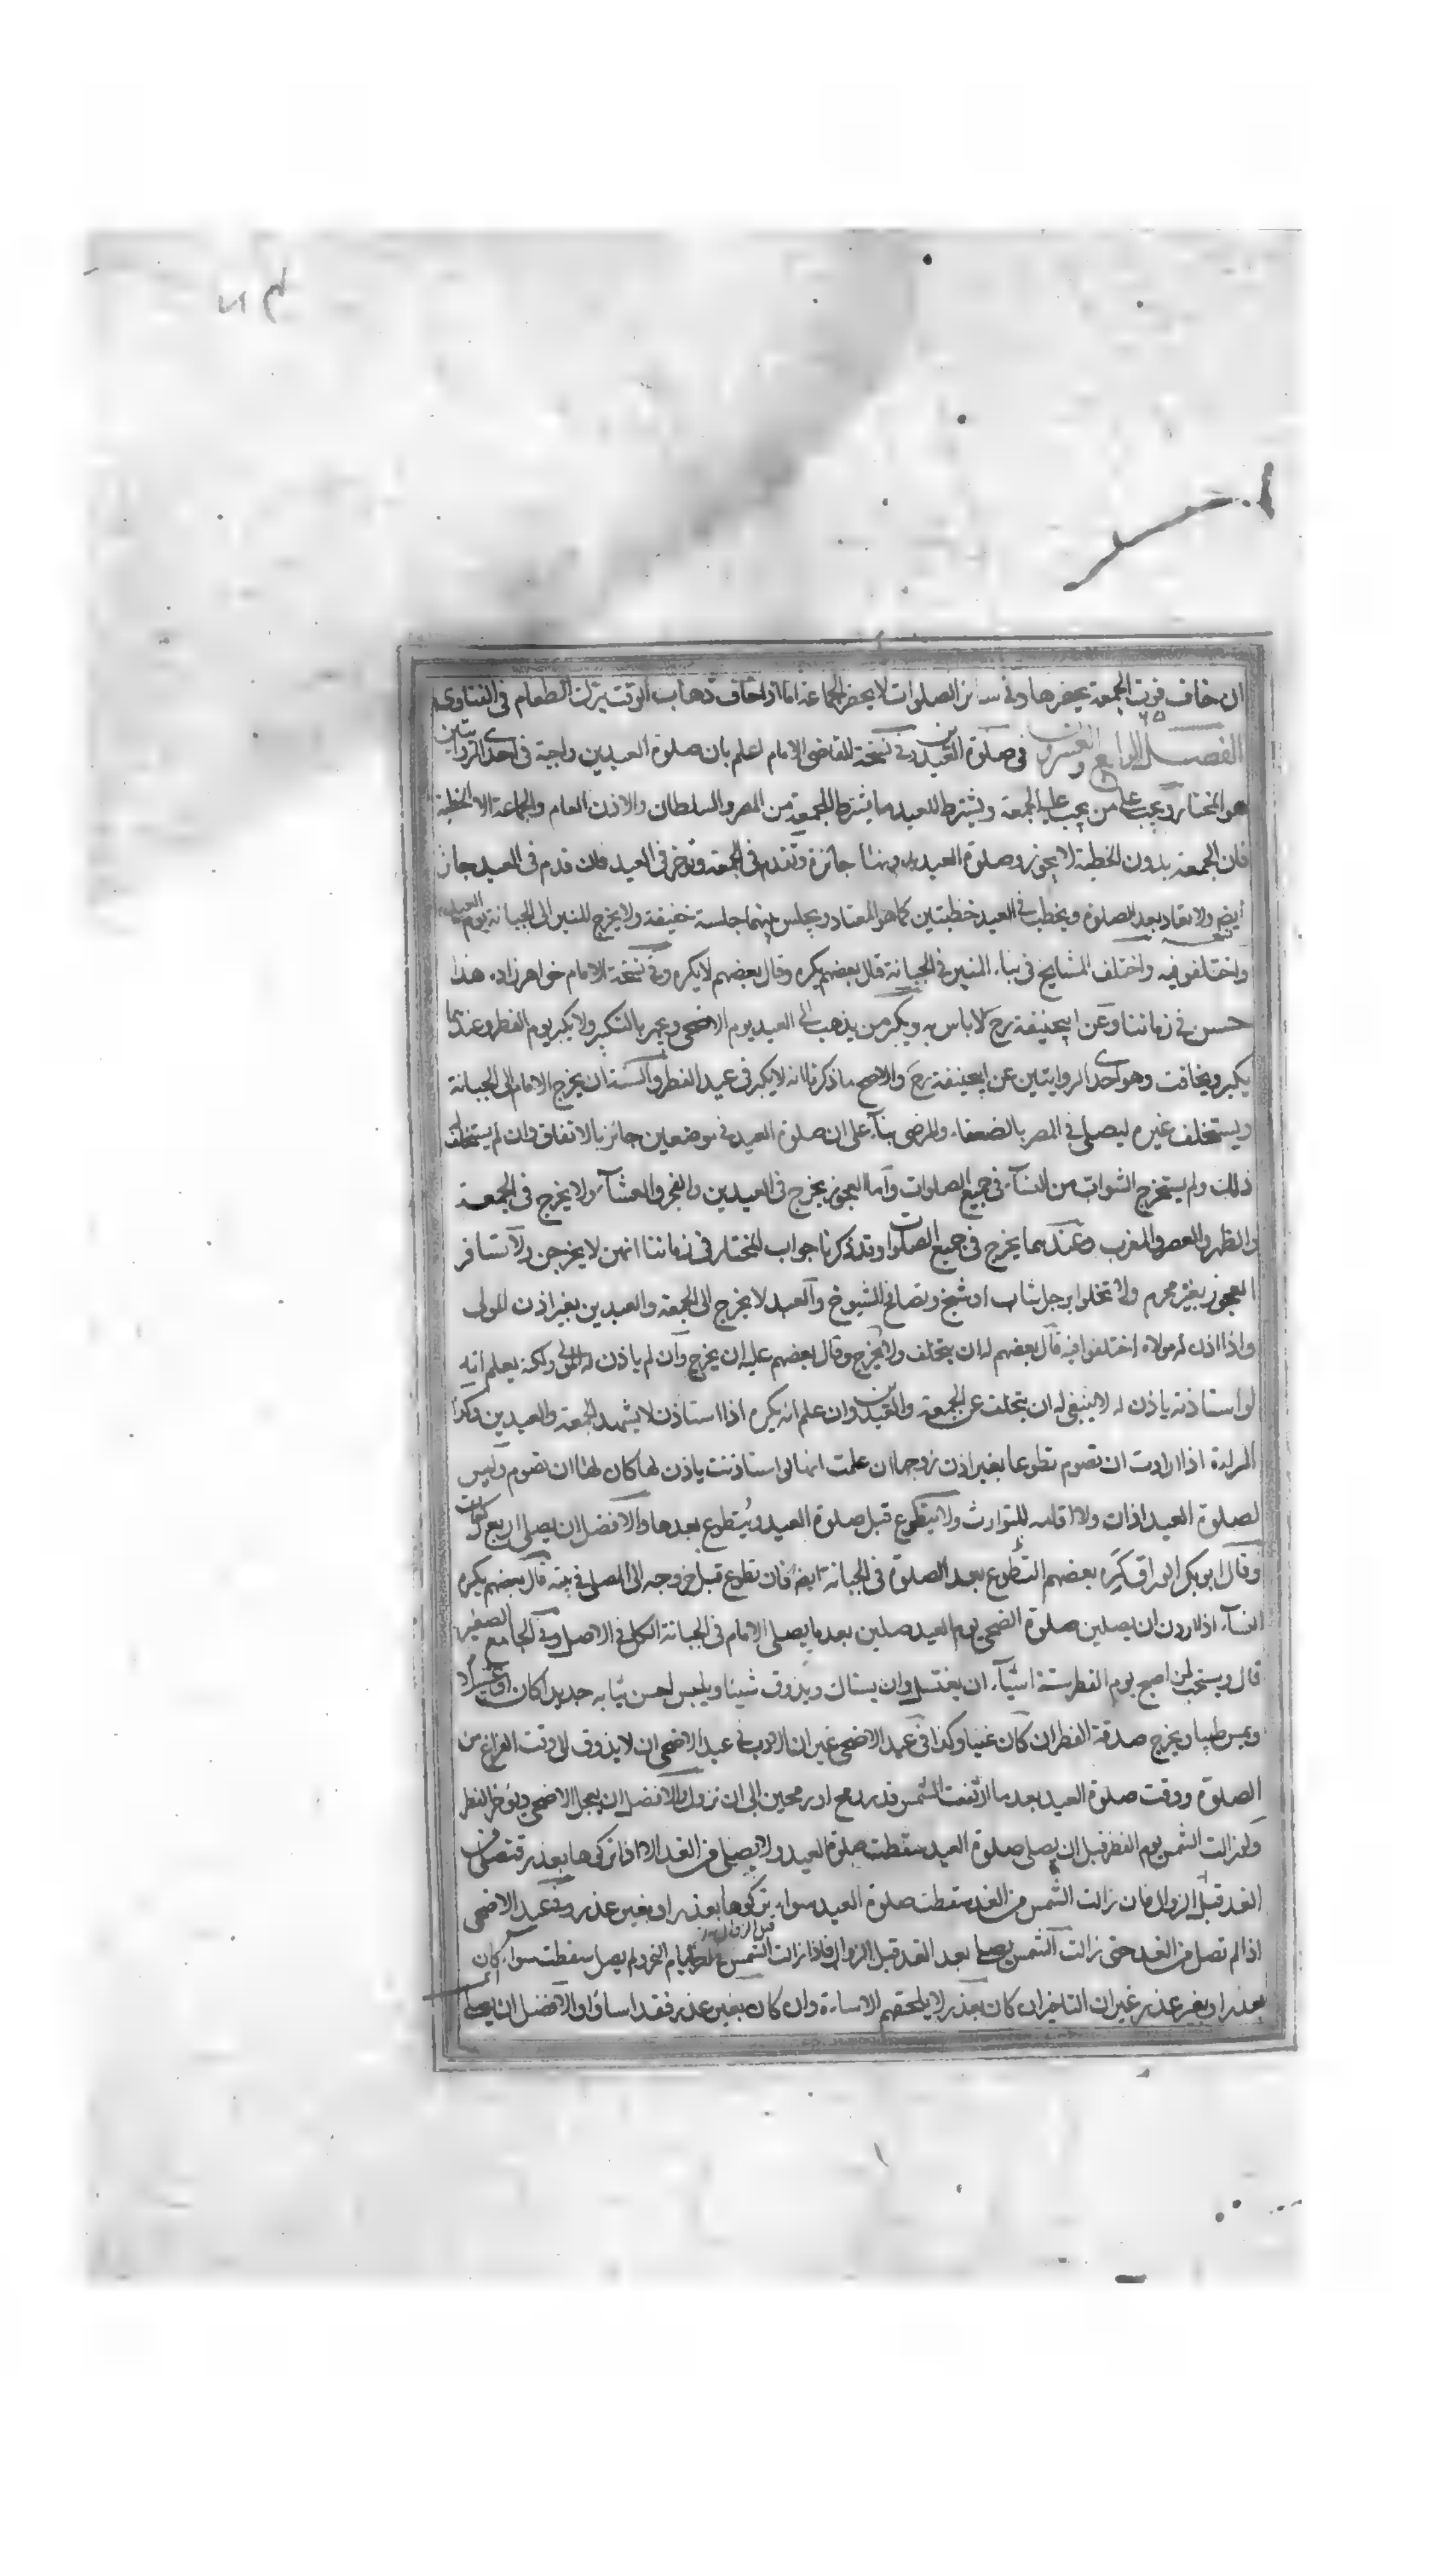 ان خاف فوت الجمعة يحضرها وفي سائر الصلوات لا يحضر الجماعة اما اذا خاف ذهاب الوقت يترك الطعام في الفتاوى
الفصل الرابع والعشرون في صلوة العيدين وفي نسخة القاضي الامام اعلم بان صلوة العيدين واجبة في احدى الروايتين
هو المختار ويجب على من يجب عليه الجمعة ويشترط للعيد ما يشترط للجمعة من المصر والسلطان والاذن العام والجماعة الا الخطبة
فان الجمعة بدون الخطبة لا يجوز وصلوة العيد بدونها جائزة وتقدم في الجمعة وتوخر في العيد فان قدم في العيد جاز
ايضا ولا تعاد بعد الصلوة ويخطب في العيد خطبتين كما هو المعتاد ويجلس بينهما جلسة خفيفة ولا يخرج المنبر الى الجبانة يوم العيد
واختلفوا فيه واختلف المشايخ في بناء المنبر في الجبانة قال بعضهم يكره وقال بعضهم لا يكره وفي نسخة الامام خواهر زاده هذا
حسن في زماننا وعن ابيحنيفة رح لا باس به ويكبر من يذهب الى العيد يوم الاضحى ويجهر بالتكبير ولا يكبر يوم الفطر وعندهما
يكبر ويخافت وهو احدى الروايتين عن ابيحنيفة رح والاصح ما ذكرنا انه لا يكبر في عيد الفطر والسنة ان يخرج الامام الى الجبانة
ويستخلف غيره ليصلي في المصر بالضعفاء والمرضى بناء على ان صلوة العيد في موضعين جائز بالاتفاق وان لم يستخلف له
ذلك ولم يستخرج الشواب من النساء في جميع الصلوات واما العجوز يخرج في العيدين والفجر والعشاء ولا يخرج في الجمعة
والظهر والعصر والمغرب وعندهما يخرج في جميع الصلوات وقد ذكرنا جواب المختار في زماننا انهن لا يخرجن ولا تسافر
العجوز بغير محرم ولا تخلوا برجل شاب او شيخ وتصافح الشيوخ والعبد لا يخرج الى الجمعة والعيدين بغير اذن المولى
واذا اذن له مولاه اختلفوا فيه قال بعضهم له ان يتخلف ولا يخرج وقال بعضهم عليه ان يخرج وان لم ياذن له المولى ولكنه يعلم انه
لو استاذنه ياذن له لا ينبغي له ان يتخلف عن الجمعة والعيدين وان علم انه يكره اذا استاذن لا يشهد الجمعة والعيدين وكذا
المراءة اذا ارادت ان تصوم تطوعا بغير اذن زوجها ان علمت انها لو استاذنت ياذن لها كان لها ان تصوم وليس
لصلوة العيد اذان ولا اقامة للتوارث ولا يتطوع قبل صلوة العيد ويتطوع بعدها والافضل ان يصلي اربع ركعات
وقال ابو بكر الوراق كره بعضهم التطوع بعد الصلوة في الجبانة ايضا فان تطوع قبل خروجه الى المصلى في بيته قال بعضهم يكره
النساء اذا اردن ان يصلين صلوة الضحى يوم العيد صلين بعد ما يصلي الامام في الجبانة الكل في الاصل وفي الجامع الصغير
قال ويستحب لمن اصبح يوم الفطر ستة اشياء ان يغتسل وان يستاك ويذوق شيئا ويلبس احسن ثيابه جديدا كان او غسيلا
ويمس طيبا ويخرج صدقة الفطر ان كان غنيا وكذا في عيد الاضحى غير ان الادب في عيد الاضحى ان لا يذوق الى وقت الفراغ من
الصلوة ووقت صلوة العيد بعد ما ارتفعت الشمس قدر رمح او رمحين الى ان تزول والافضل ان يعجل الاضحى ويؤخر الفطر
ولو زالت الشمس يوم الفطر قبل ان يصلي صلوة العيد سقطت صلوة العيد ولا يصلي من الغد الا اذا تركوها بعذر فتقضى من
الغد قبل الزوال فان زالت الشمس من الغد سقطت صلوة العيد سواء تركوها بعذر او بغير عذر وفي عيد الاضحى
اذا لم تصل من الغد حتى زالت الشمس يصلى بعد الغد قبل الزوال فاذا زالت الشمس ايام النحر ولم يصل سقطت سواء كان
بعذر او بغير عذر غير ان التاخير ان كان بعذر لا يلحقهم الاساءة وان كان بغير عذر فقد اساؤا والافضل ان يصلى